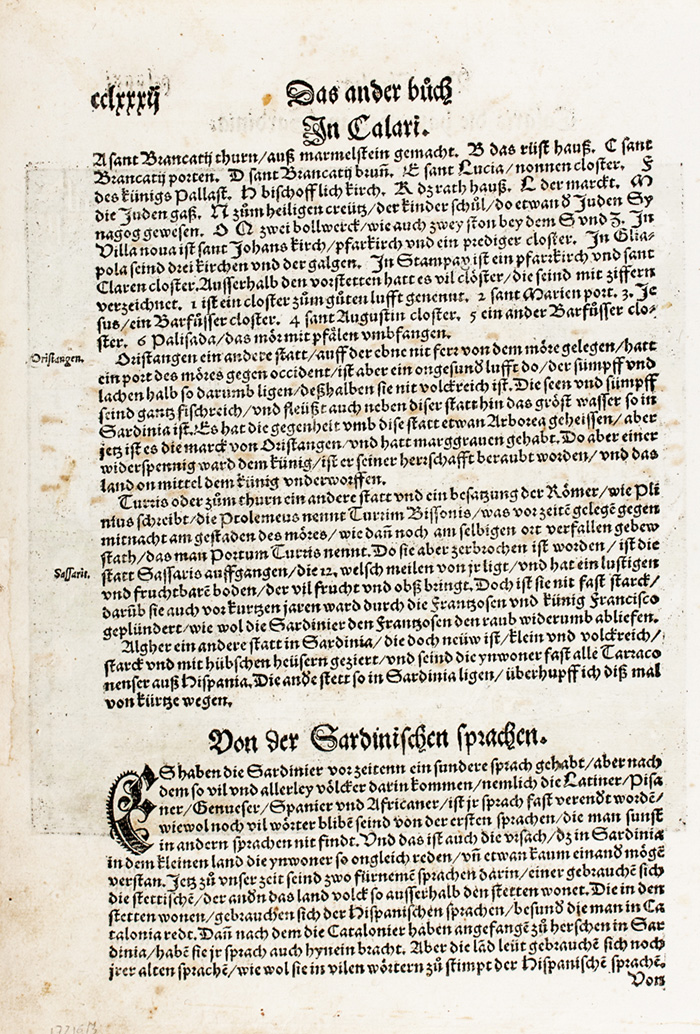 cclxxxij
Das ander bůch
In Calari.
A sant Brancatij thurn/auß marmelstein gemacht. B das rüst hauß. C sant
Brancatij porten. D sant Brancatij bruñ. E sant Lucia/nonnen closter. F
des künigs Pallast. H bischofflich kirch. K dz rath hauß. L der marckt. M
die Juden gaß. N zům heiligen creütz/der kinder schůl/do etwan d Juden Sy
nagog gewesen. O Q zwei bollwerck/wie auch zwey ston bey dem S vnd Z. In
Villa noua ist sant Johans kirch/pfarkirch vnd ein prediger closter. In Glia-
pola seind drei kirchen vnd der galgen. In Stampay ist ein pfarkirch vnd sant
Claren closter. Ausserhalb den vorstetten hatt es vil clöster/die seind mit ziffern
verzeichnet. 1 ist ein closter zům gůten lufft genennt. 2 sant Marien port. 3. Je
sus/ein Barfůsser closter. 4 sant Augustin closter. 5 ein ander Barfůsser clo-
ster. 6 Palisada/das mör mit pfälen vmbfangen.
Oristangen.
Oristangen ein andere statt/auff der ebne nit ferr von dem möre gelegen/hatt
ein port des möres gegen occident/ist aber ein ongesund lufft do/der sümpff vnd
lachen halb so darumb ligen/deßhalben sie nit volckreich ist. Die seen vnd sümpff
seind gantz fischreich/vnd fleüßt auch neben diser statt hin das gröst wasser so in
Sardinia ist. Es hat die gegenheit vmb dise statt etwan Arborea geheissen/aber
jetz ist es die marck von Oristangen/vnd hatt marggrauen gehabt. Do aber einer
widerspennig ward dem künig/ist er seiner herrschafft beraubt worden/vnd das
land on mittel dem künig vnderworffen.
Turris oder zům thurn ein andere statt vnd ein besatzung der Römer/wie Pli
nius schreibt/die Ptolemeus nennt Turrim Bissonis/was vor zeitē gelegē gegen
mitnacht am gestaden des möres/wie dañ noch am selbigen ort verfallen gebew
stath/das man Portum Turris nennt. Do sie aber zerbrochen ist worden/ist die
Sassarit.
statt Sassaris auffgangen/die 12. welsch meilen von jr ligt/vnd hat ein lustigen
vnd fruchtbarē boden/der vil frucht vnd obß bringt. Doch ist sie nit fast starck/
darüb sie auch vor kurtzen jaren ward durch die Frantzosen vnd künig Francisco
geplündert/wie wol die Sardinier den Frantzosen den raub widerumb abliefen.
Algher ein andere statt in Sardinia/die doch neüw ist/klein vnd volckreich/
starck vnd mit hübschen heüsern geziert/vnd seind die ynwoner fast alle Tarraco
nenser auß Hispania. Die andē stett so in Sardinia ligen/überhupff ich diß mal
von kürtze wegen.
Von der Sardinischen sprachen.
ES haben die Sardinier vor zeitenn ein sundere sprach gehabt/aber nach
dem so vil vnd allerley völcker darin kommen/nemlich die Latiner/Pisa
ner/Genueser/Spanier vnd Africaner/ist jr sprach fast verendt wordē/
wiewol noch vil wörter blibē seind von der ersten sprachen/die man sunst
in andern sprachen nit findt. Vnd das ist auch die vrsach/dz in Sardinia
in dem kleinen land die ynwoner so ongleich reden/vñ etwan kaum einand mögē
verstan. Jetz zů vnser zeit seind zwo fürnemē sprachen darin/einer gebrauchē sich
die stettischē/der andn das land volck so ausserhalb den stetten wonet. Die in den
stetten wonen/gebrauchen sich der Hispanischen sprachen/besund die man in Ca
talonia redt. Dañ nach dem die Catalonier haben angefangē zů herschen in Sar
dinia/habē sie jr sprach auch hynein bracht. Aber die lād leüt gebrauchē sich noch
jrer alten sprachē/wie wol sie in vilen wörtern zů stimpt der Hispanischē sprachē.
Von